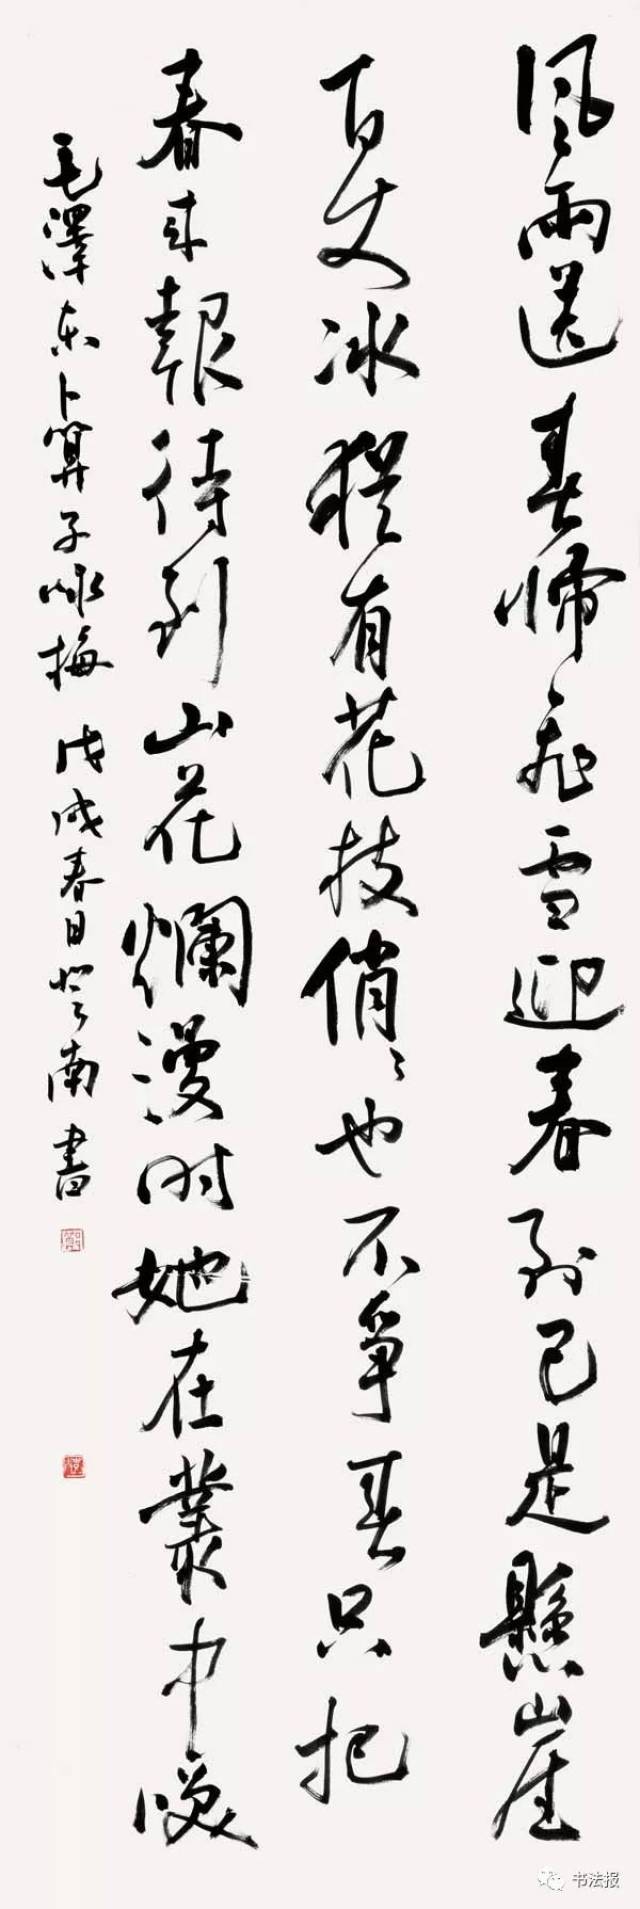 風雨送春歸飛雪迎春到已是懸崖
百丈冰猶有花枝俏俏也不爭春只把
春來報待到山花爛漫時她在叢中笑
毛澤东卜算子咏梅 戊戌春日 南書
书法报